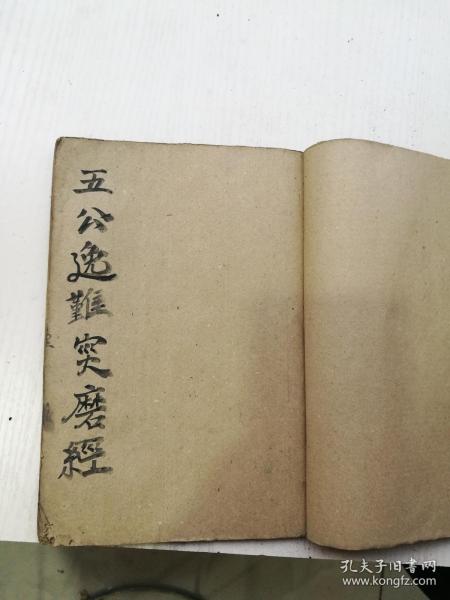 五公逸難突磨經
孔夫子旧书网
www.kongfz.com